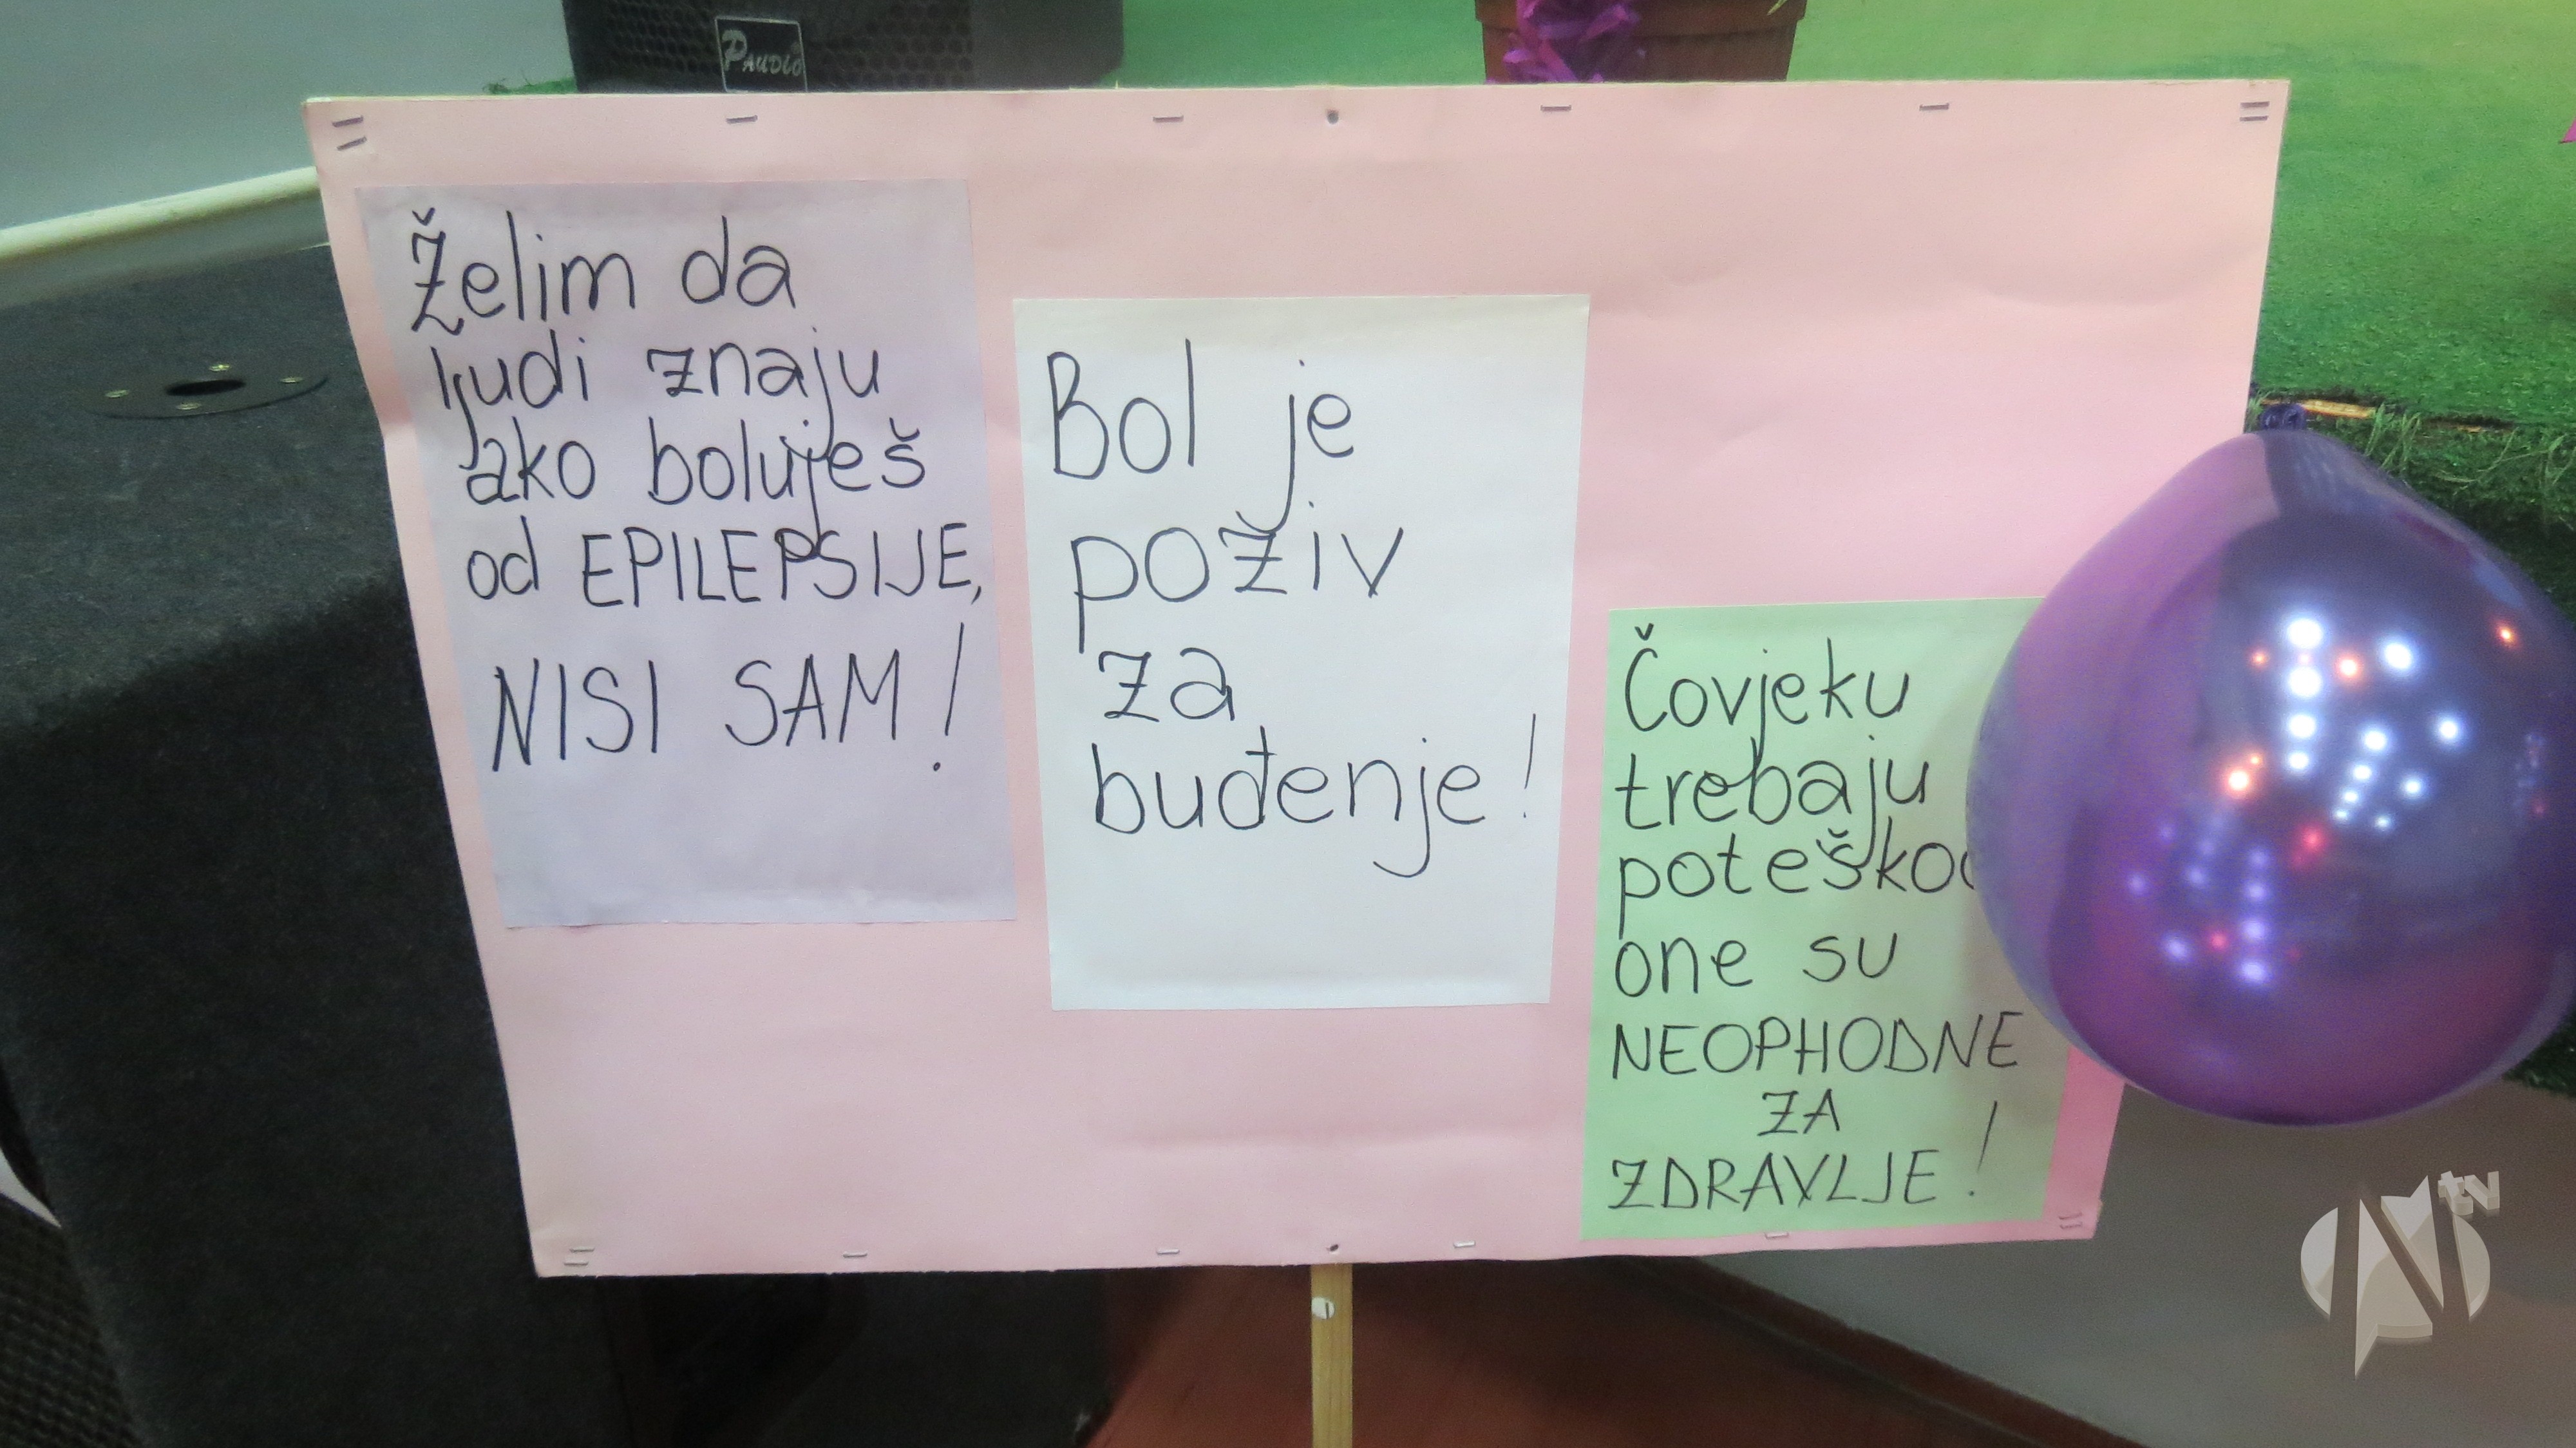 PAudio
Želim da
ljudi znaju
ako boluješ
od EPILEPSIJE,
NISI SAM!
Bol je
poziv
za
buđenje!
Čovjeku
trebaju
one su
NEOPHODNE
ZA
ZDRAVLJE!
tv